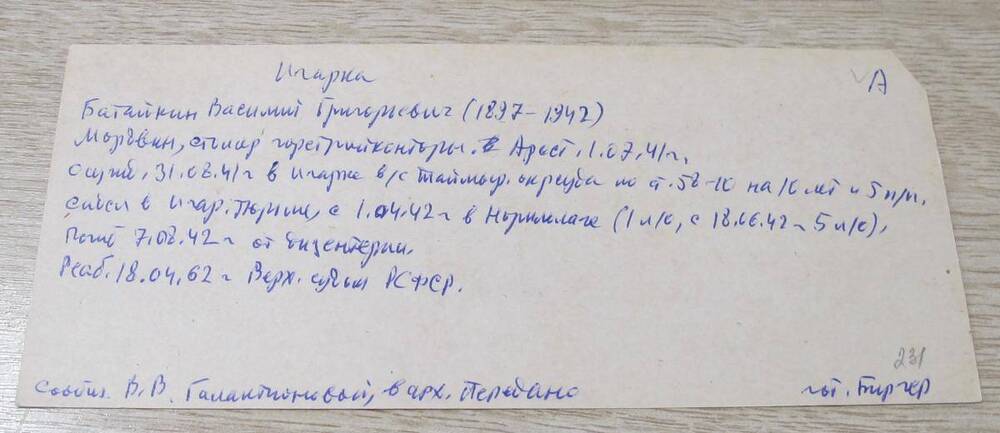 Игарка
А
Батайкин Василий Григорьевич (1897-1942)
Мордвин, столяр горстройконторы. Арест. 1.07.41г.
Осужд. 31.08.41г в Игарке в/с Таймыр. окрсуда по ст. 58-10 на 10 лет и 5 п/п.
сидел в Игар. тюрьме, с 1.04.42г в Норильлаге (1 л/о, с 18.06.42г 5 л/о).
Погиб 7.08.42г от дизентерии.
Реаб. 18.04.62г Верх. судом РСФСР.
231
Сообщ. В.В. Галактионовой, в арх. Передано
гот. Биргер